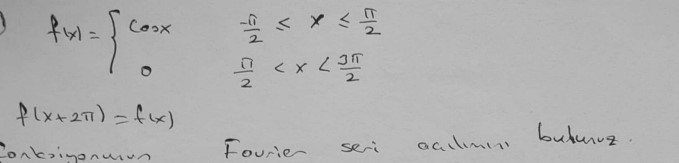 f(x) = { cosx -π/2 ≤ x ≤ π/2
0 π/2 < x < 3π/2
f(x+2π) = f(x)
fonksiyonunun Fourier seri açılımını bulunuz.